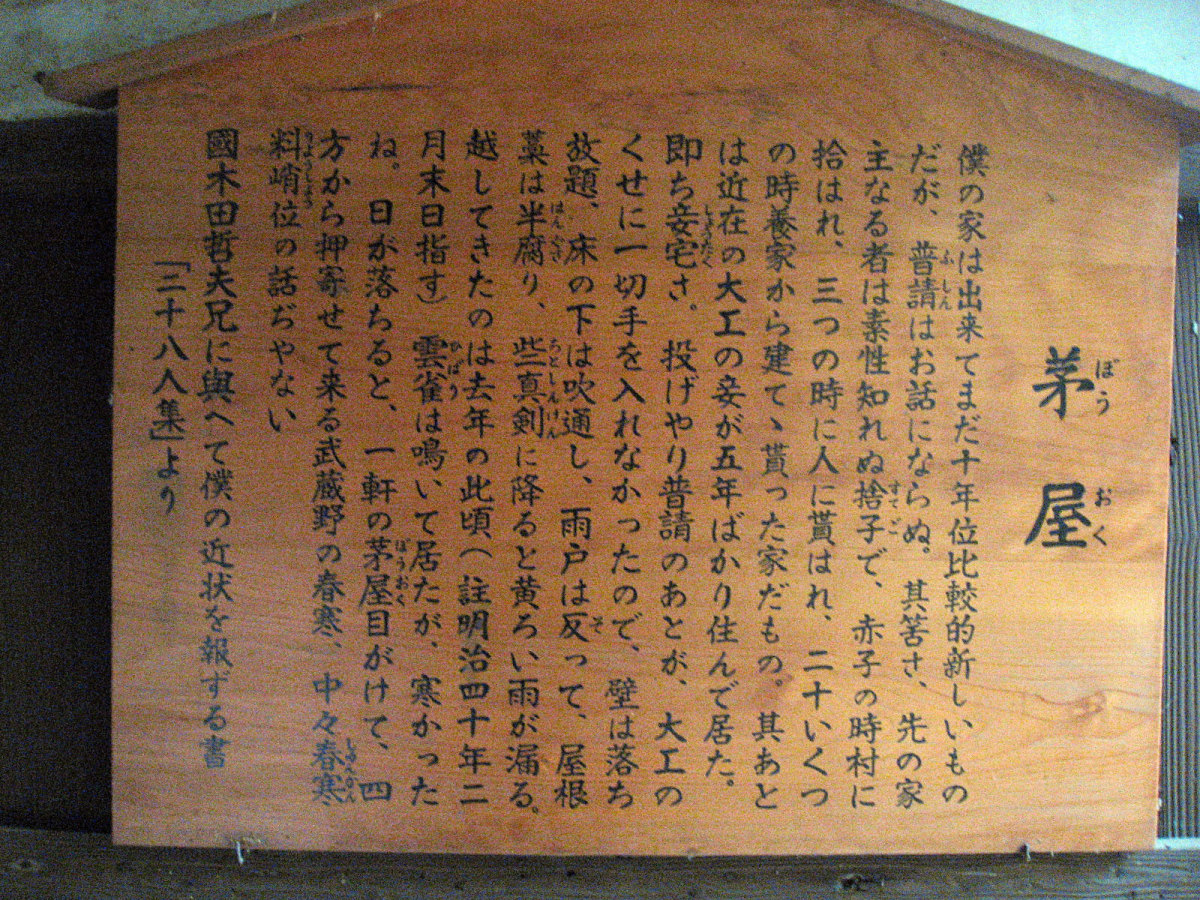 茅屋
僕の家は出来てまだ十年位比較的新しいもの
だが、普請はお話にならぬ。其筈さ、先の家
主なる者は素性知れぬ捨子で、赤子の時村に
拾はれ、三つの時に人に貰はれ、二十いくつ
の時養家から建てゝ貰った家だもの。其あと
は近在の大工の妾が五年ばかり住んで居た。
即ち妾宅さ。投げやり普請のあとが、大工の
くせに一切手を入れなかったので、壁は落ち
放題、床の下は吹通し、雨戸は反って、屋根
藁は半腐り、些真剣に降ると黄ろい雨が漏る。
越してきたのは去年の此頃（註明治四十年二
月末日指す）雲雀は鳴いて居たが、寒かった
ね。日が落ちると、一軒の茅屋目がけて、四
方から押寄せて来る武蔵野の春寒、中々春寒
料峭位の話ぢやない
國木田哲夫兄に與へて僕の近状を報ずる書
「二十八人集」より